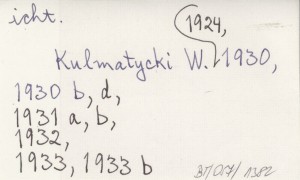 icht.
1924,
Kulmatycki W. 1930,
1930 b, d,
1931 a, b,
1932,
1933, 1933 b
BT/017/1382